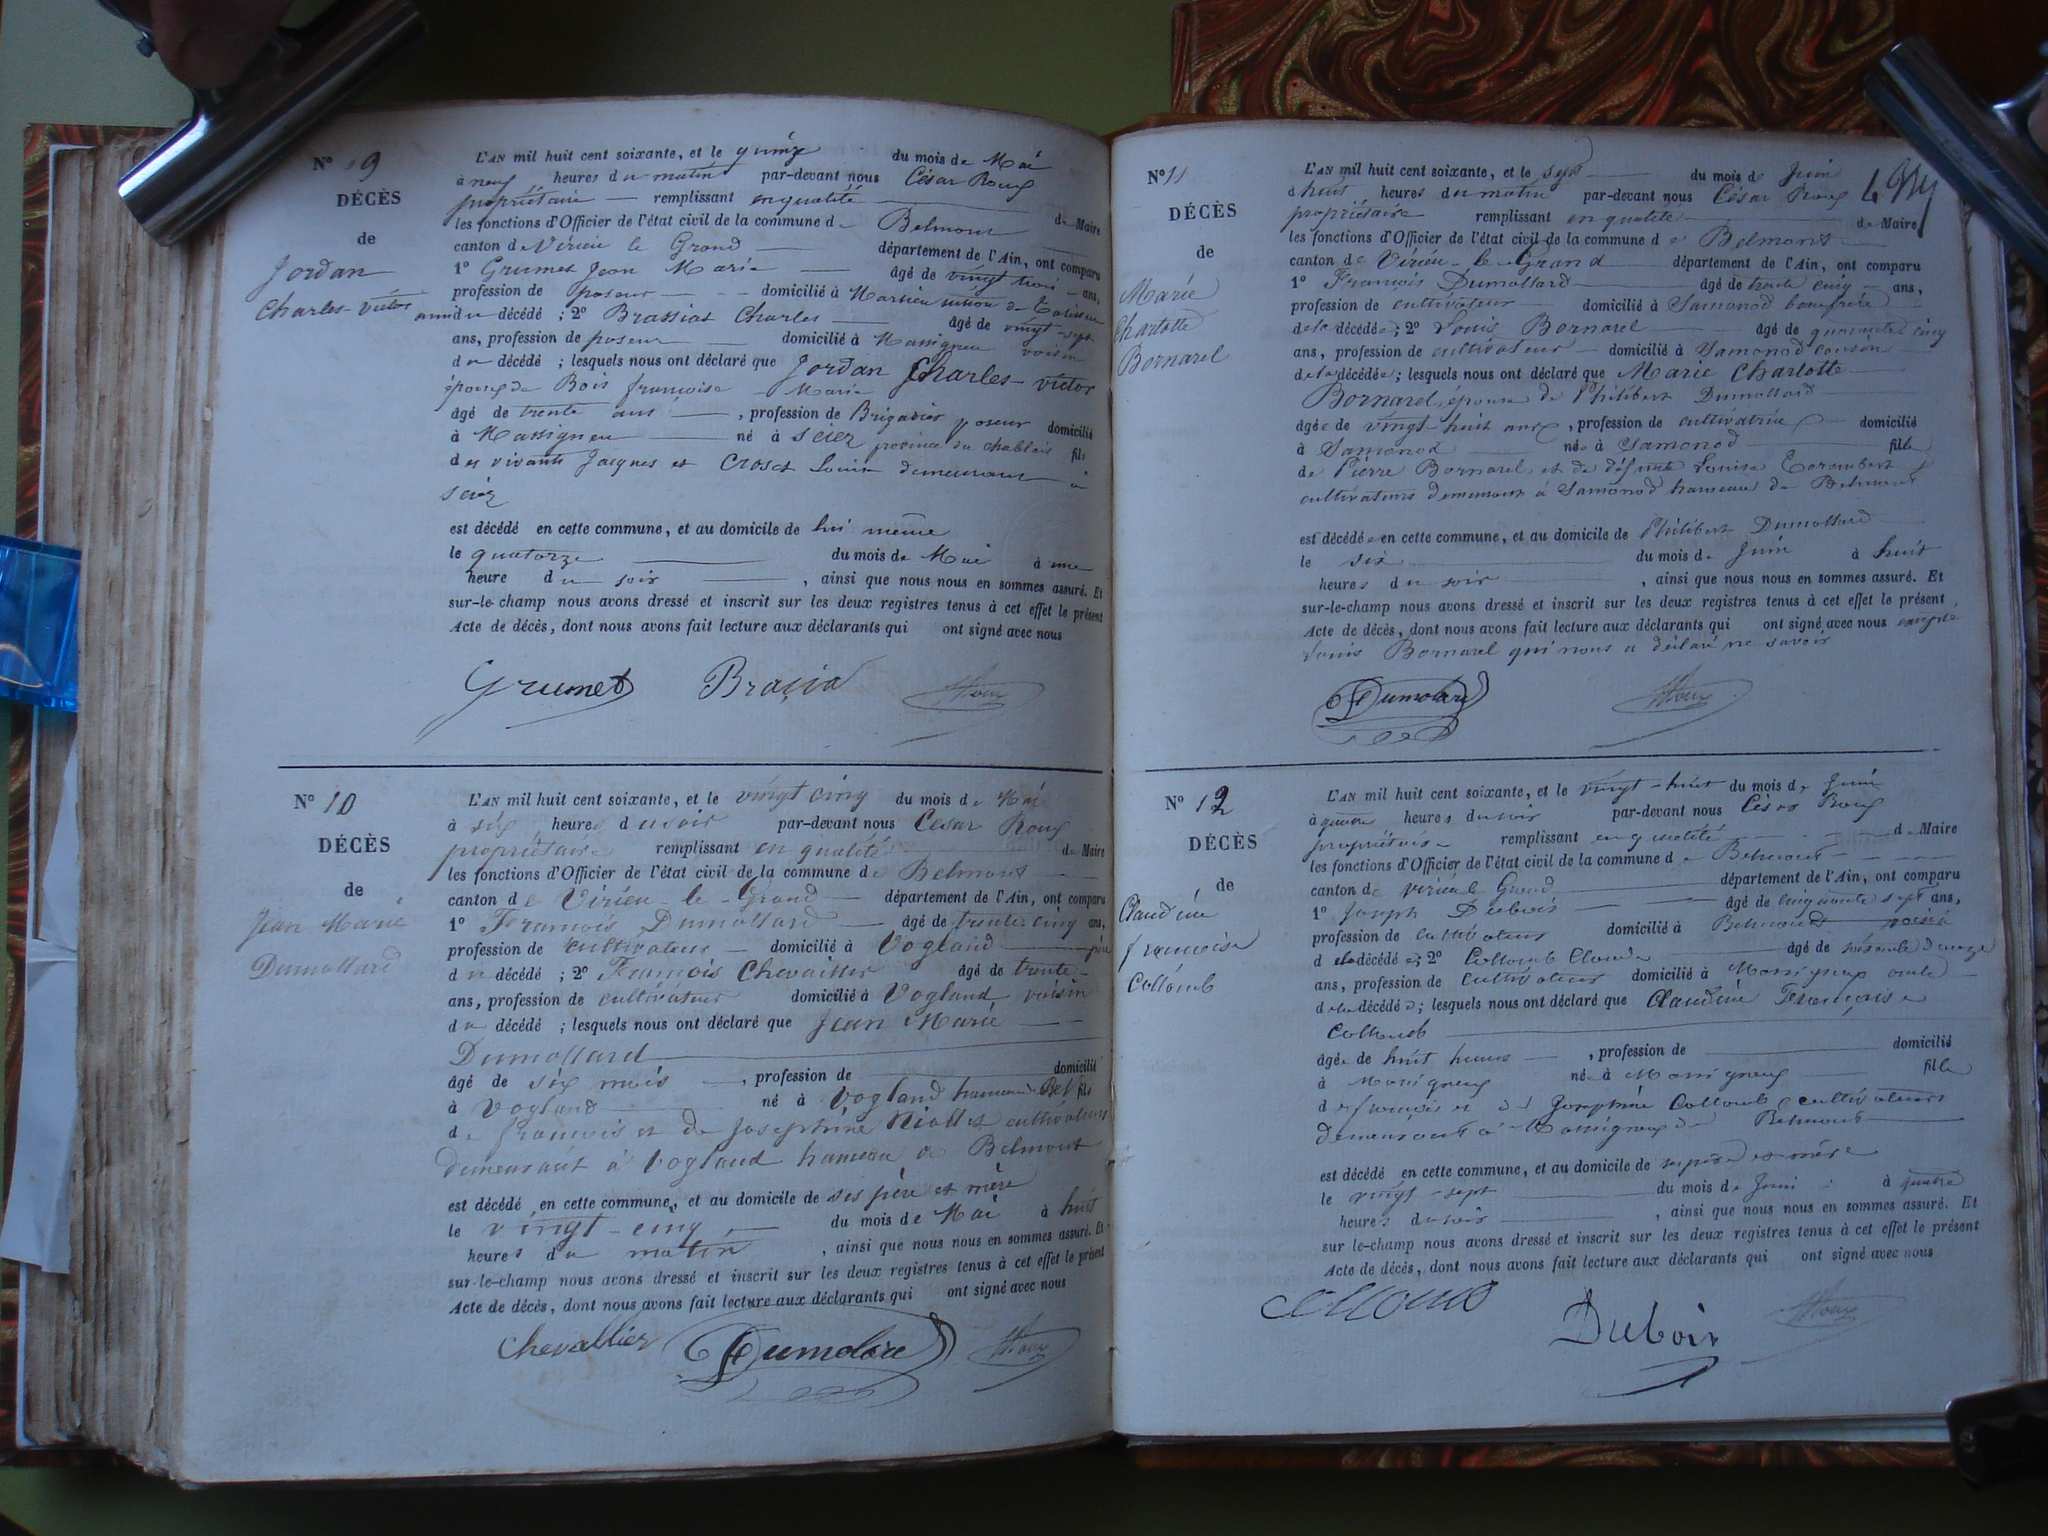 N° 9
DÉCÈS
de
Jordan
Charles-victor
L'AN mil huit cent soixante, et le quinze du mois de Mai
à neuf heures du matin par-devant nous César Roux
propriétaire remplissant en qualité de Maire
les fonctions d'Officier de l'état civil de la commune de Belmont
canton de Virieu le Grand département de l'Ain, ont comparu
1° Grumet Jean Marie âgé de vingt trois ans,
profession de poseur domicilié à
ami du décédé ; 2° Brassiat Charles âgé de vingt-sept
ans, profession de poseur domicilié à Massigneu voisin
du décédé ; lesquels nous ont déclaré que Jordan Charles-victor
époux de Bois françoise Marie
âgé de trente ans , profession de Brigadier poseur domicilié
à Massigneu né à Sciez province du Chablais fils
des vivants Jacques et Croset Louise demeurant à
Sciez
est décédé en cette commune, et au domicile de lui même
le quatorze du mois de Mai à une
heure du soir , ainsi que nous nous en sommes assuré. Et
sur-le-champ nous avons dressé et inscrit sur les deux registres tenus à cet effet le présent
Acte de décès, dont nous avons fait lecture aux déclarants qui ont signé avec nous
Grumet Brasia Roux
N° 10
DÉCÈS
de
Jean Marie
Dumollard
L'AN mil huit cent soixante, et le vingt cinq du mois de Mai
à six heures du soir par-devant nous César Roux
propriétaire remplissant en qualité de Maire
les fonctions d'Officier de l'état civil de la commune de Belmont
canton de Virieu-le-Grand département de l'Ain, ont comparu
1° François Dumollard âgé de trente cinq ans,
profession de cultivateur domicilié à Vogland père
du décédé ; 2° François Chevallier âgé de trente
ans, profession de cultivateur domicilié à Vogland voisin
du décédé ; lesquels nous ont déclaré que Jean Marie
Dumollard
âgé de six mois , profession de domicilié
à Vogland né à Vogland hameau Bel fils
de françois et de Joséphine cultivateurs
demeurant à Vogland hameau de Belmont
est décédé en cette commune, et au domicile de ses père et mère
le vingt-cinq du mois de Mai à huit
heures du matin , ainsi que nous nous en sommes assuré. Et
sur-le-champ nous avons dressé et inscrit sur les deux registres tenus à cet effet le présent
Acte de décès, dont nous avons fait lecture aux déclarants qui ont signé avec nous
Chevallier Dumolare Roux
N° 11
DÉCÈS
de
Marie
Charlotte
Bornarel
L'AN mil huit cent soixante, et le sept du mois de Juin
à huit heures du matin par-devant nous César Roux
propriétaire remplissant en qualité de Maire
les fonctions d'Officier de l'état civil de la commune de Belmont
canton de Virieu-le-Grand département de l'Ain, ont comparu
1° François Dumollard âgé de trente cinq ans,
profession de cultivateur domicilié à Samonod beaufrère
de la décédée ; 2° Louis Bornarel âgé de quarante cinq
ans, profession de cultivateur domicilié à Samonod cousin
de la décédée ; lesquels nous ont déclaré que Marie Charlotte
Bornarel, épouse de Philibert Dumollard
âgée de vingt-huit ans , profession de cultivatrice domicilié
à Samonod née à Samonod fille
de Pierre Bornarel et de défunte Louise
cultivateurs demeurant à Samonod hameau de Belmont
est décédée en cette commune, et au domicile de Philibert Dumollard
le six du mois de Juin à huit
heures du soir , ainsi que nous nous en sommes assuré. Et
sur-le-champ nous avons dressé et inscrit sur les deux registres tenus à cet effet le présent
Acte de décès, dont nous avons fait lecture aux déclarants qui ont signé avec nous excepté
Louis Bornarel qui nous a déclaré ne savoir
Dumolare Roux
N° 12
DÉCÈS
de
Claudine
françoise
Colloub
L'AN mil huit cent soixante, et le vingt-huit du mois de Juin
à heures du soir par-devant nous César Roux
propriétaire remplissant en qualité de Maire
les fonctions d'Officier de l'état civil de la commune de Belmont
canton de Virieu le Grand département de l'Ain, ont comparu
1° Joseph Dubois âgé de cinquante sept ans,
profession de cultivateur domicilié à Belmont voisin
de la décédée ; 2° Colloub Claude âgé de soixante
ans, profession de cultivateur domicilié à Massigneux oncle
de la décédée ; lesquels nous ont déclaré que Claudine Françoise
Colloub
âgée de huit heures , profession de domicilié
à Massigneux née à Massigneux fille
de françois et de Joséphine Colloub cultivateurs
demeurant à Massigneux de Belmont
est décédé en cette commune, et au domicile de ses père et mère
le vingt-sept du mois de Juin à quatre
heures du soir , ainsi que nous nous en sommes assuré. Et
sur le-champ nous avons dressé et inscrit sur les deux registres tenus à cet effet le présent
Acte de décès, dont nous avons fait lecture aux déclarants qui ont signé avec nous
Dubois Roux